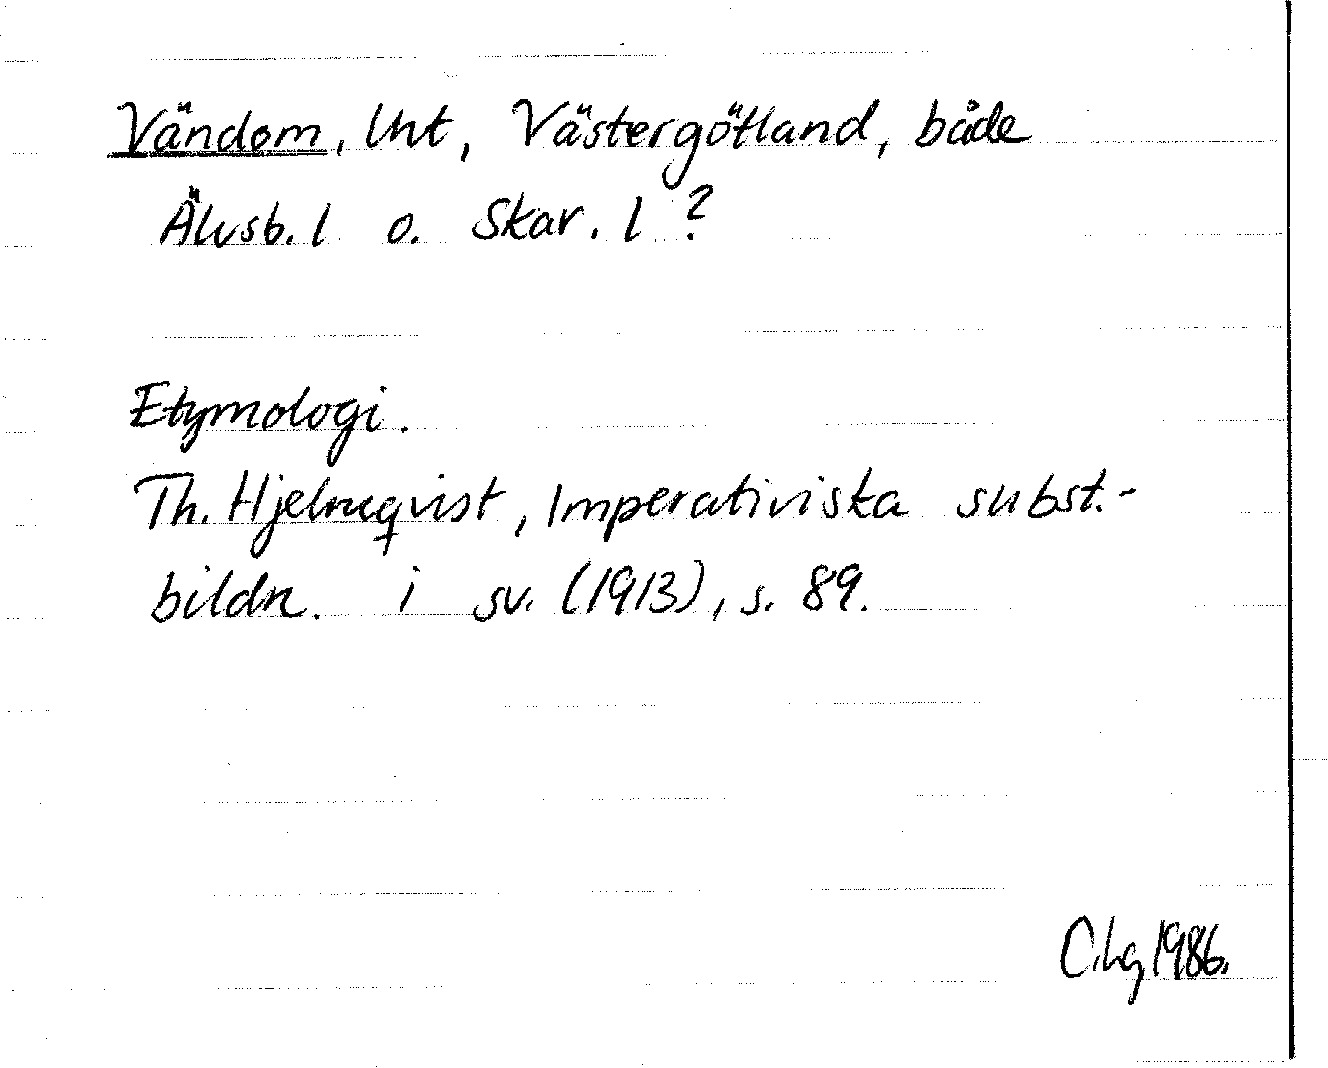 Vändom, lht, Västergötland, både
Älvsb. l o. Skar. l ?
Etymologi.
Th. Hjelmqvist, Imperativiska subst.-
bildn. i sv. (1913), s. 89.
C.Lg 1986.